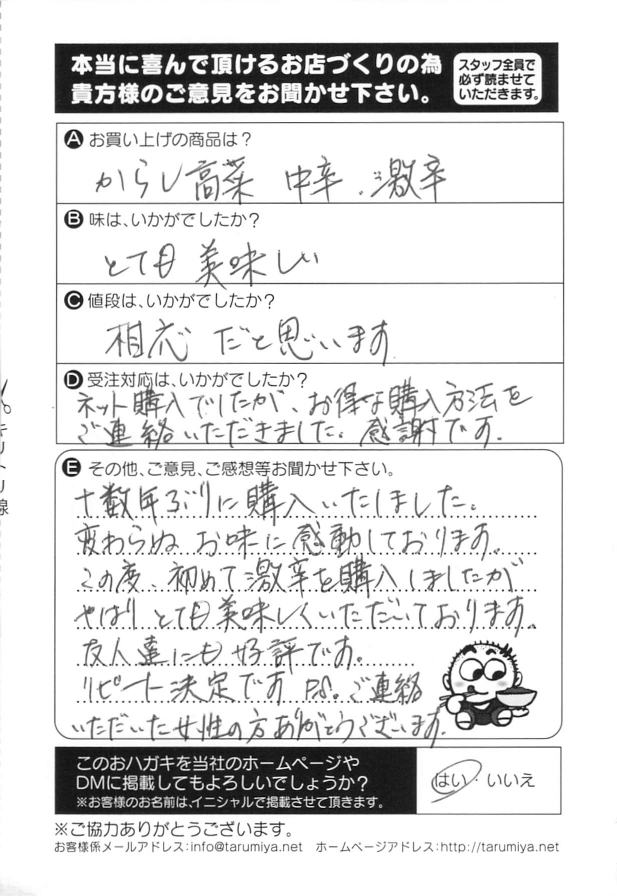 本当に喜んで頂けるお店づくりの為
貴方様のご意見をお聞かせ下さい。
スタッフ全員で
必ず読ませて
いただきます。
A お買い上げの商品は？
からし高菜 中辛、激辛
B 味は、いかがでしたか？
とても美味しい
C 値段は、いかがでしたか？
相応だと思います
D 受注対応は、いかがでしたか？
ネット購入でしたが、お得な購入方法を
ご連絡いただきました。感謝です。
E その他、ご意見、ご感想等お聞かせ下さい。
十数年ぶりに購入いたしました。
変わらぬお味に感動しております。
この度、初めて激辛を購入しましたが
やはりとても美味しくいただいております。
友人達にも好評です。
リピート決定です P.S. ご連絡
いただいた女性の方ありがとうございます。
キリトリ線
このおハガキを当社のホームページや
DMに掲載してもよろしいでしょうか？
※お客様のお名前は、イニシャルで掲載させて頂きます。
はい・いいえ
※ご協力ありがとうございます。
お客様係メールアドレス：info@tarumiya.net ホームページアドレス：http://tarumiya.net